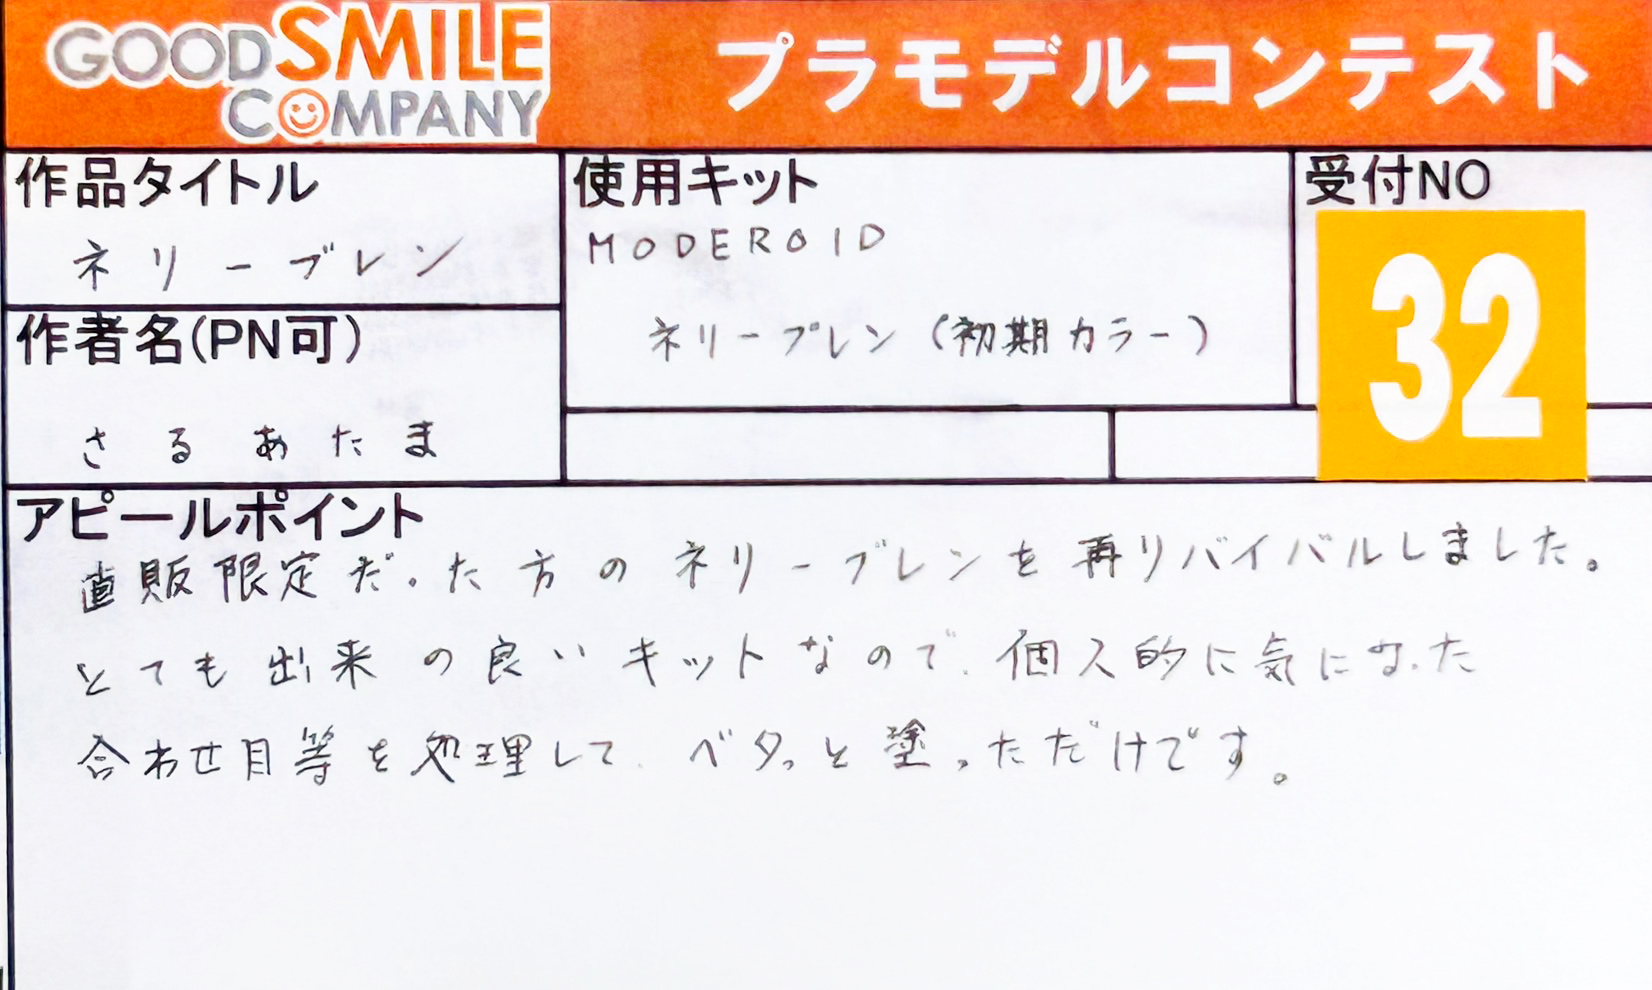 GOOD SMILE
COMPANY
プラモデルコンテスト
作品タイトル
ネリーブレン
使用キット
MODEROID
ネリーブレン(初期カラー)
受付NO
32
作者名(PN可)
さるあたま
アピールポイント
直販限定だった方のネリーブレンを再リバイバルしました。
とても出来の良いキットなので、個人的に気になった
合わせ目等を処理して、ベタっと塗っただけです。